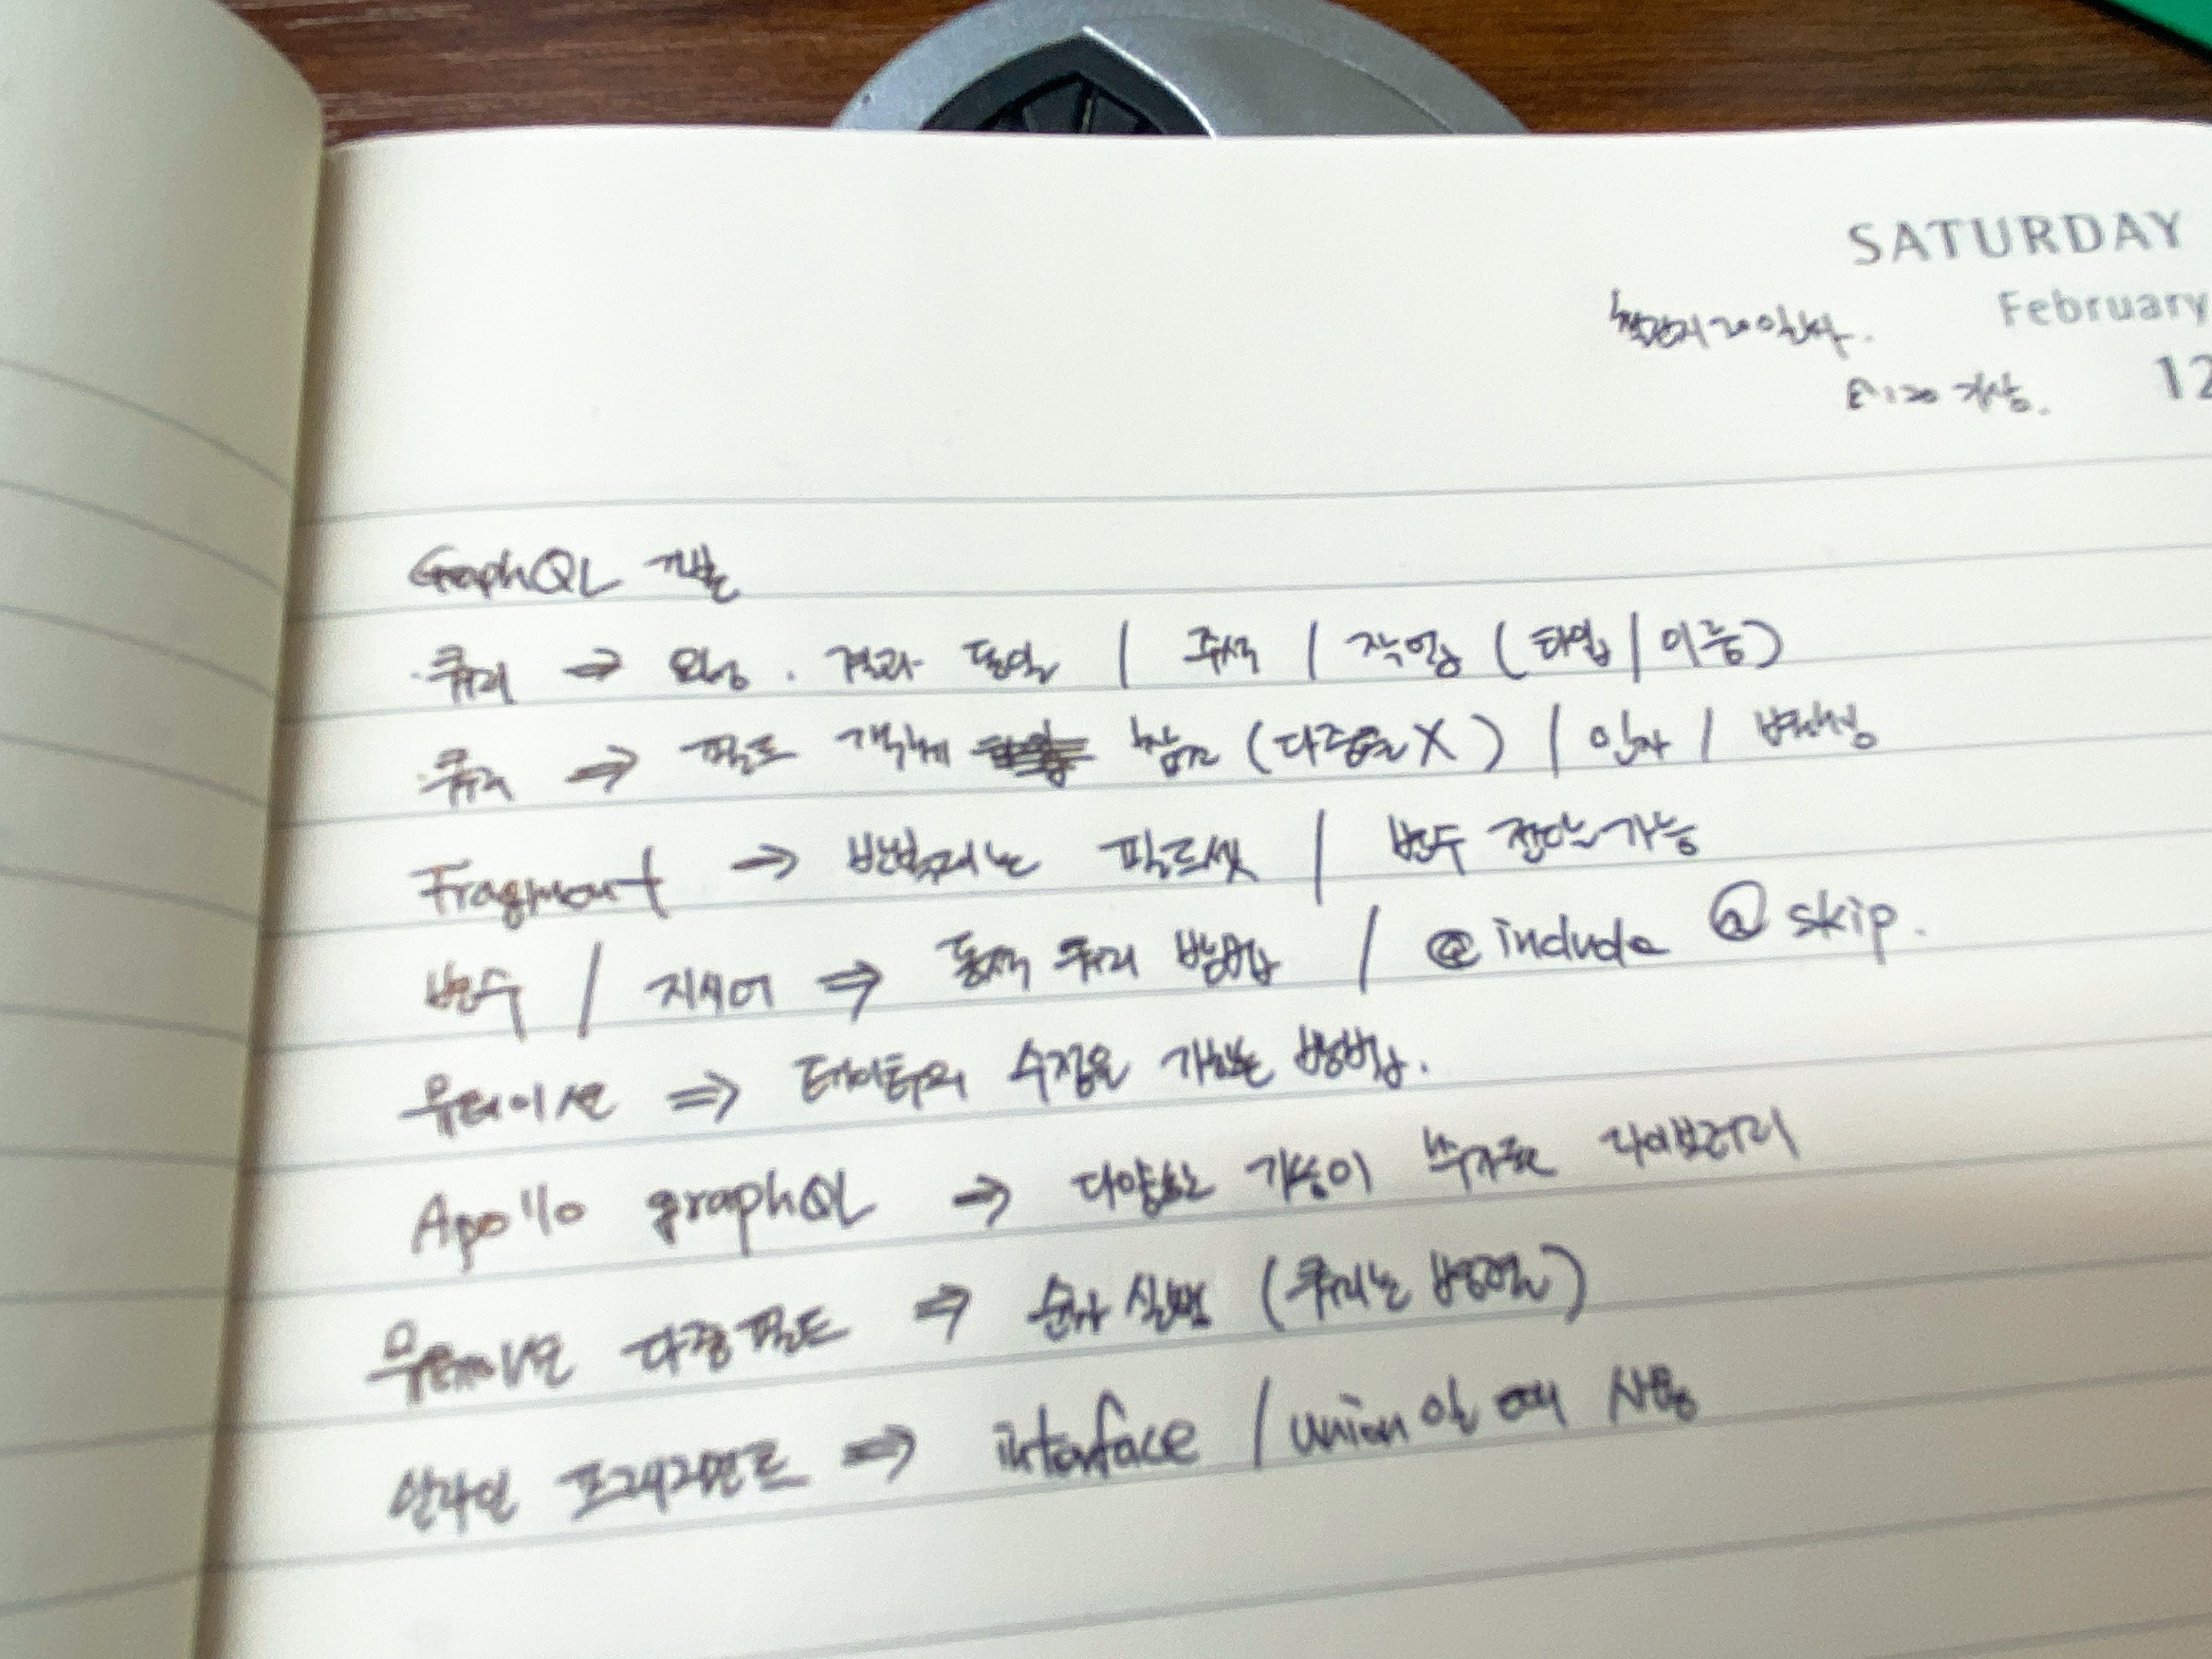 SATURDAY
February
12
GraphQL 개발
· 쿼리 ⇒ 요청 . 결과 동일 | 주석 | 작업 ( 타입 | 이름 )
· 쿼리 ⇒ 필드 객체 참조 ( X ) | 인자 | 별칭
Fragment → 반복되는 필드셋 | 변수 전달 가능
변수 / 지시어 ⇒ 동적 쿼리 방법 / @include @skip.
뮤테이션 ⇒ 데이터의 수정을 가하는 방법.
Apollo graphQL → 다양한 기능이 라이브러리
뮤테이션 다중 필드 ⇒ 순차 실행 (쿼리는 병렬)
인라인 프래그먼트 ⇒ interface / union 일 때 사용